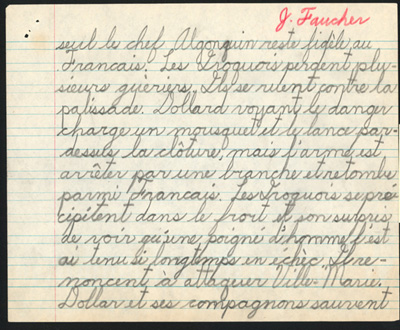 J. Faucher
seuil le chef Algonquin reste fidèle au
Francais. Les Iroquois perdent plu-
sieurs guèriers. Ils se ruent contre la
palissade. Dollard voyant le danger
charge un mousquet et le lance par-
dessus la clôture, mais l'arme est
arrêter par une branche et retombe
parmi Francais. Les Iroquois se pré
cipitent dans le frort et son surpris
de voir qu'une poigné d'homme l'est
ai tenu si longtemps en échec. Il re-
noncent à attaquer Ville-Marie.
Dollar et ses compagnons sauvent